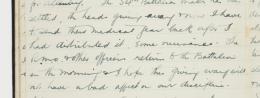 for cleaning. The 31st Battalion makes me
the heads giving away now I have
to send their medical gear back after I
had distributed it. Some nuisance. The
& other officers return to the Battalion
in the morning & I hope the giving way will
not have a bad affect on our discipline.